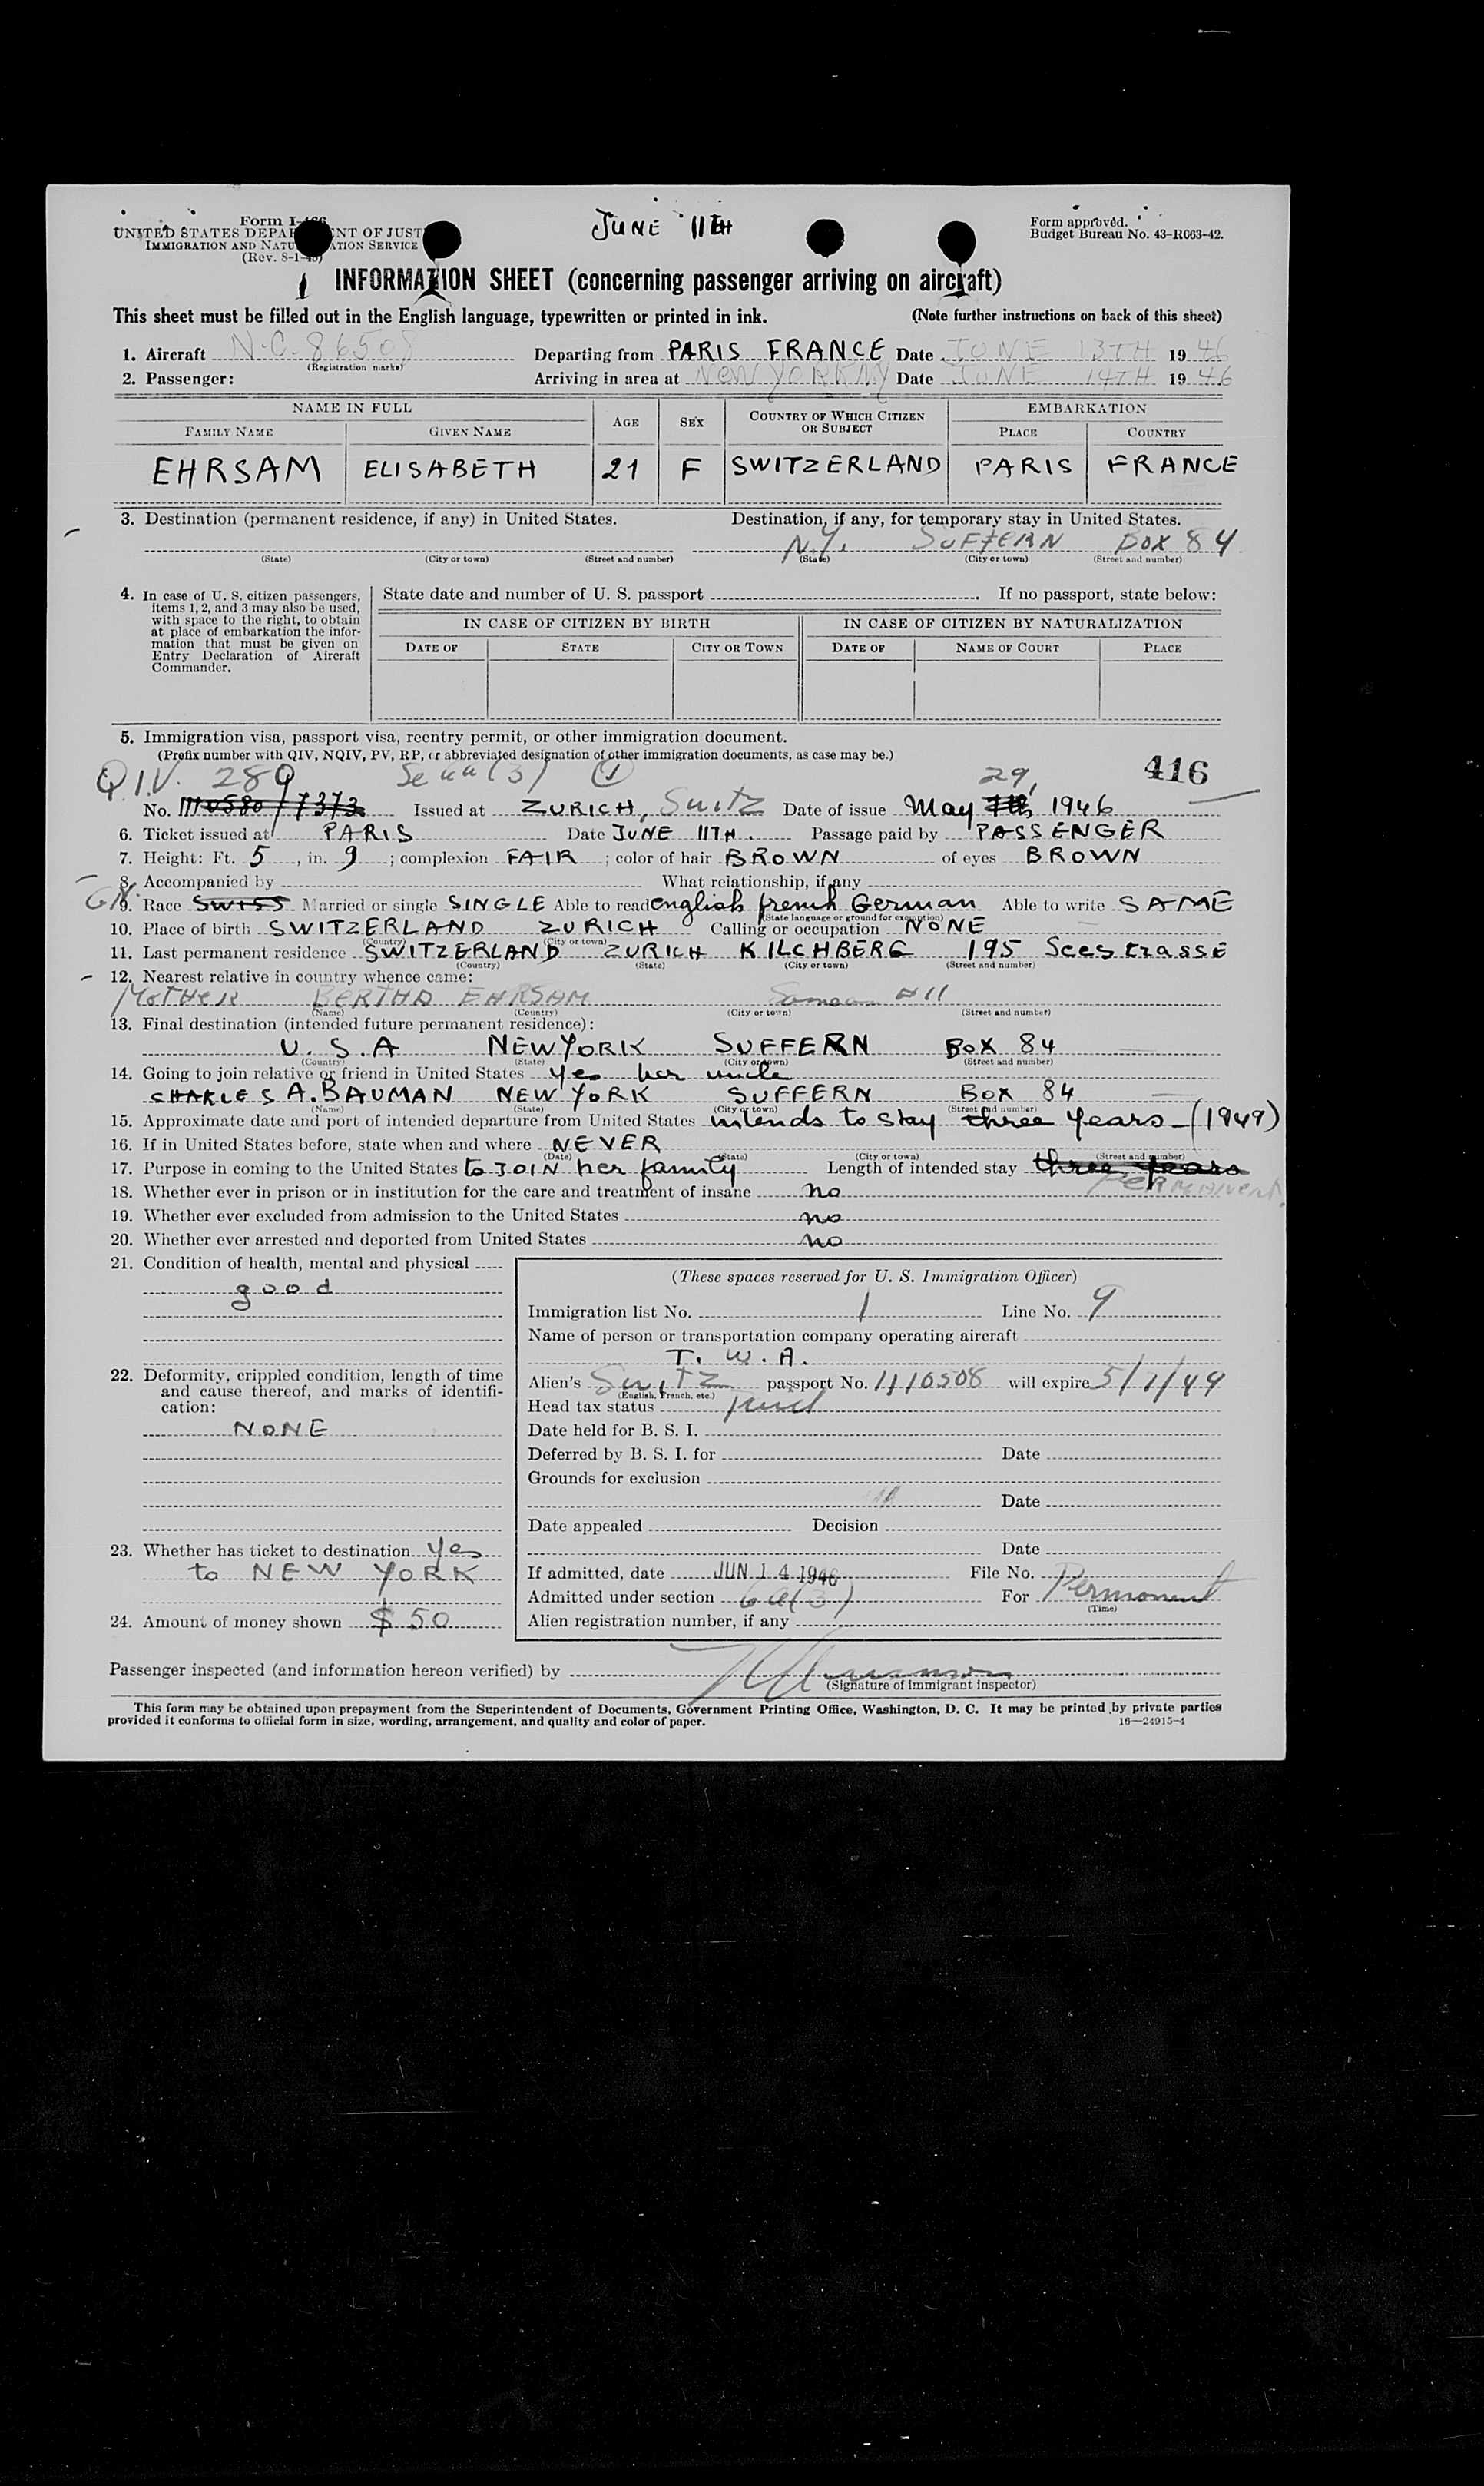 JUNE 11TH
Form I-466
UNITED STATES DEPARTMENT OF JUSTICE
IMMIGRATION AND NATURALIZATION SERVICE
(Rev. 8-1-45)
Form approved.
Budget Bureau No. 43-R063-42.
INFORMATION SHEET (concerning passenger arriving on aircraft)
This sheet must be filled out in the English language, typewritten or printed in ink. (Note further instructions on back of this sheet)
1. Aircraft N.C. 86508 Departing from PARIS FRANCE Date JUNE 13TH 1946
(Registration marks)
2. Passenger: Arriving in area at NEW YORK NY Date JUNE 14TH 1946
NAME IN FULL AGE SEX COUNTRY OF WHICH CITIZEN OR SUBJECT EMBARKATION
FAMILY NAME GIVEN NAME PLACE COUNTRY
EHRSAM ELISABETH 21 F SWITZERLAND PARIS FRANCE
3. Destination (permanent residence, if any) in United States. Destination, if any, for temporary stay in United States.
N.Y. SUFFERN BOX 84
(State) (City or town) (Street and number) (State) (City or town) (Street and number)
4. In case of U. S. citizen passengers, items 1, 2, and 3 may also be used, with space to the right, to obtain at place of embarkation the information that must be given on Entry Declaration of Aircraft Commander.
State date and number of U. S. passport If no passport, state below:
IN CASE OF CITIZEN BY BIRTH IN CASE OF CITIZEN BY NATURALIZATION
DATE OF STATE CITY OR TOWN DATE OF NAME OF COURT PLACE
5. Immigration visa, passport visa, reentry permit, or other immigration document.
(Prefix number with QIV, NQIV, PV, RP, or abbreviated designation of other immigration documents, as case may be.)
416
Q.I.V. 289 (3) 29,
No. 7373 Issued at ZURICH, Switz Date of issue May 7th, 1946
6. Ticket issued at PARIS Date JUNE 11TH. Passage paid by PASSENGER
7. Height: Ft. 5, in. 9; complexion FAIR; color of hair BROWN of eyes BROWN
8. Accompanied by What relationship, if any
9. Race SWISS Married or single SINGLE Able to read english french German Able to write SAME
(State language or ground for exemption)
10. Place of birth SWITZERLAND ZURICH Calling or occupation NONE
(Country) (City or town)
11. Last permanent residence SWITZERLAND ZURICH KILCHBERG 195 Seestrasse
(Country) (State) (City or town) (Street and number)
12. Nearest relative in country whence came:
MOTHER BERTHA EHRSAM Same as #11
(Name) (Country) (City or town) (Street and number)
13. Final destination (intended future permanent residence):
U.S.A NEW YORK SUFFERN BOX 84
(Country) (State) (City or town) (Street and number)
14. Going to join relative or friend in United States yes her uncle
CHARLES A. BAUMAN NEW YORK SUFFERN BOX 84
(Name) (State) (City or town) (Street and number)
15. Approximate date and port of intended departure from United States intends to stay three years - (1949)
16. If in United States before, state when and where NEVER
(Date) (State) (City or town) (Street and number)
17. Purpose in coming to the United States to JOIN her family Length of intended stay three years
PERMANENT
18. Whether ever in prison or in institution for the care and treatment of insane no
19. Whether ever excluded from admission to the United States no
20. Whether ever arrested and deported from United States no
21. Condition of health, mental and physical
good
22. Deformity, crippled condition, length of time and cause thereof, and marks of identification:
NONE
23. Whether has ticket to destination yes
to NEW YORK
24. Amount of money shown $ 50
(These spaces reserved for U. S. Immigration Officer)
Immigration list No. 1 Line No. 9
Name of person or transportation company operating aircraft
T. W. A.
Alien's Switz passport No. 1110508 will expire 5/7/49
(English, French, etc.)
Head tax status Paid
Date held for B. S. I.
Deferred by B. S. I. for Date
Grounds for exclusion
Date
Date appealed Decision
Date
If admitted, date JUN 14 1946 File No.
Admitted under section 6a(3) For Permanent
(Time)
Alien registration number, if any
Passenger inspected (and information hereon verified) by
(Signature of immigrant inspector)
This form may be obtained upon prepayment from the Superintendent of Documents, Government Printing Office, Washington, D. C. It may be printed by private parties
provided it conforms to official form in size, wording, arrangement, and quality and color of paper. 16—24915-4